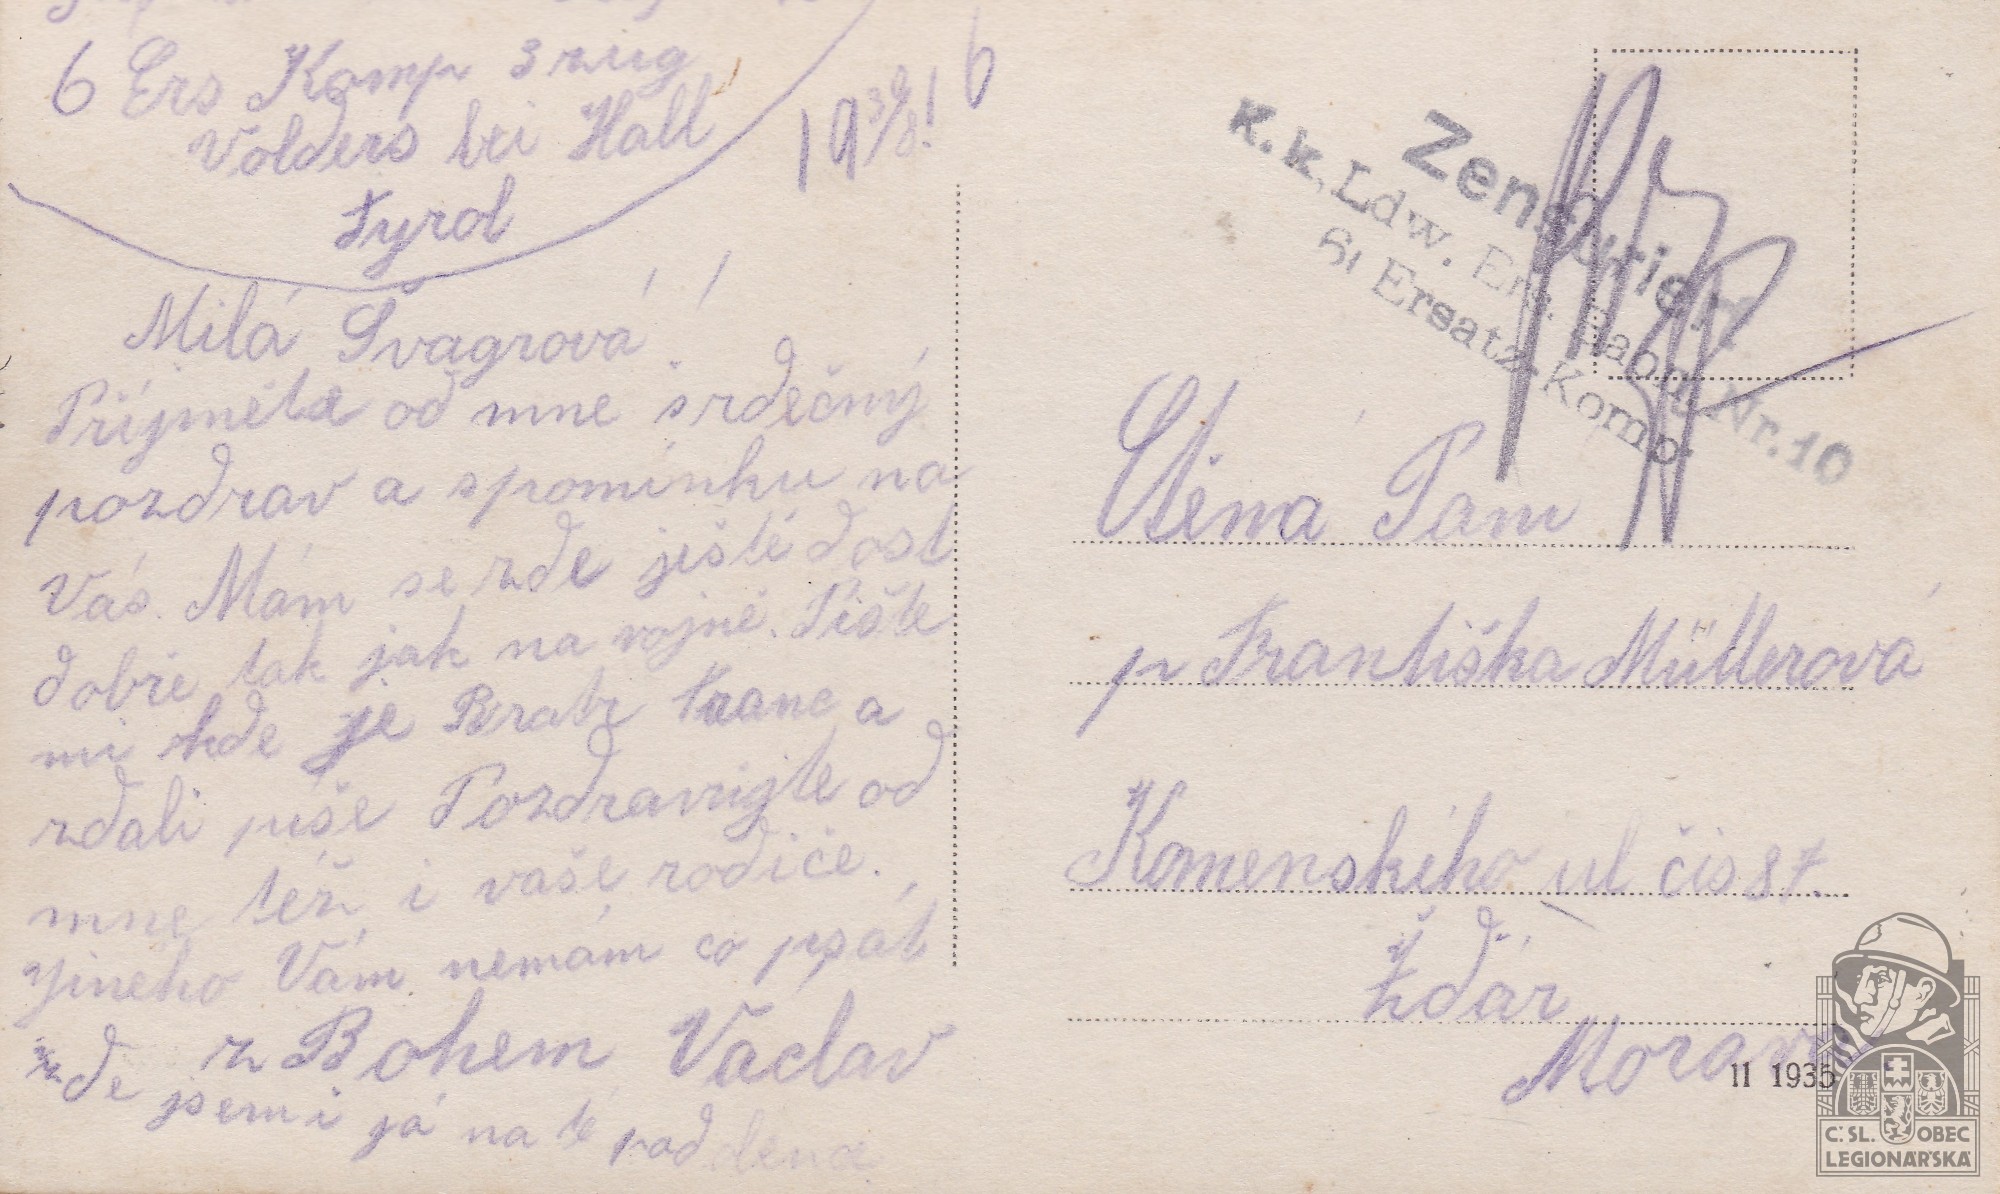 6 Ers Komp 3 zug
Volders bei Hall
Tyrol
19 30/8! 6
Milá Švagrová!
Příjměte od mne srdečný
pozdrav a spomínku na
Vás. Mám se zde ještě dost
dobře tak jak na vojně. Pište
mi kde je Bratr Franc a
zdali píše Pozdravujte od
mne též i vaše rodiče.
Jineho Vám nemám co psát
z Bohem Václav
zde jsem i já na té
Zensuriert
K.k. Ldw. Ers. Baon. Nr. 10
6. Ersatz Komp.
Ctěná Paní
p Františka Müllerová
Komenského ul čis 87.
Žďár
Morava
11 1935
Č. SL. OBEC
LEGIONÁŘSKÁ